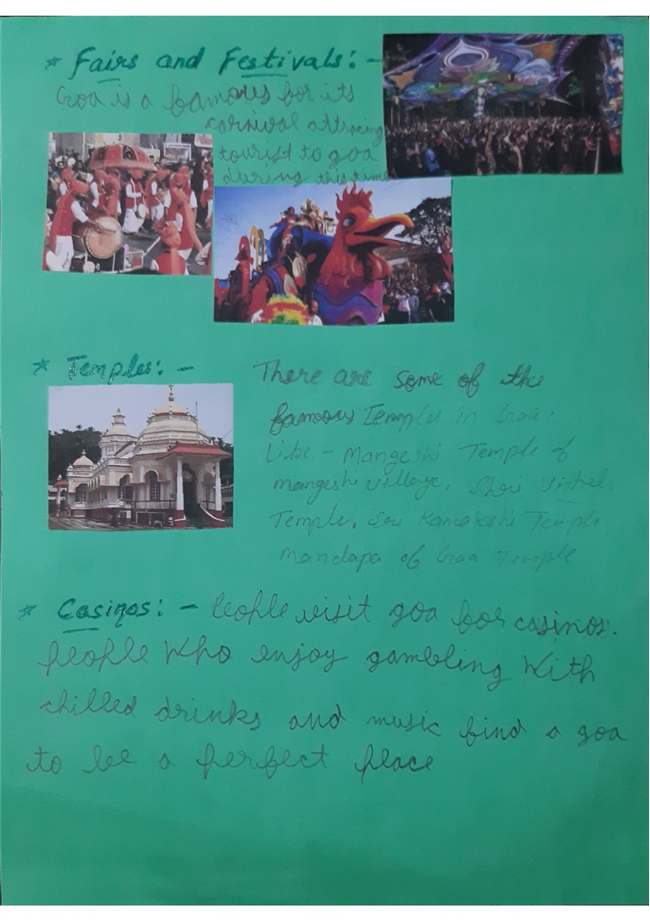 * Fairs and Festivals: -
Goa is a famous for its
carnival attracing
tourist to goa
during this time
* Temples: -
There are some of the
famous Temple in Goa.
Like - Mangeshi Temple of
mangeshi village, Shri Vithal
Temple, Sri Kamakshi Temple
Mandapa of Goa Temple
* Casinos: - People visit goa for casinos.
People Who enjoy gambling With
chilled drinks and music find a goa
to be a perfect place